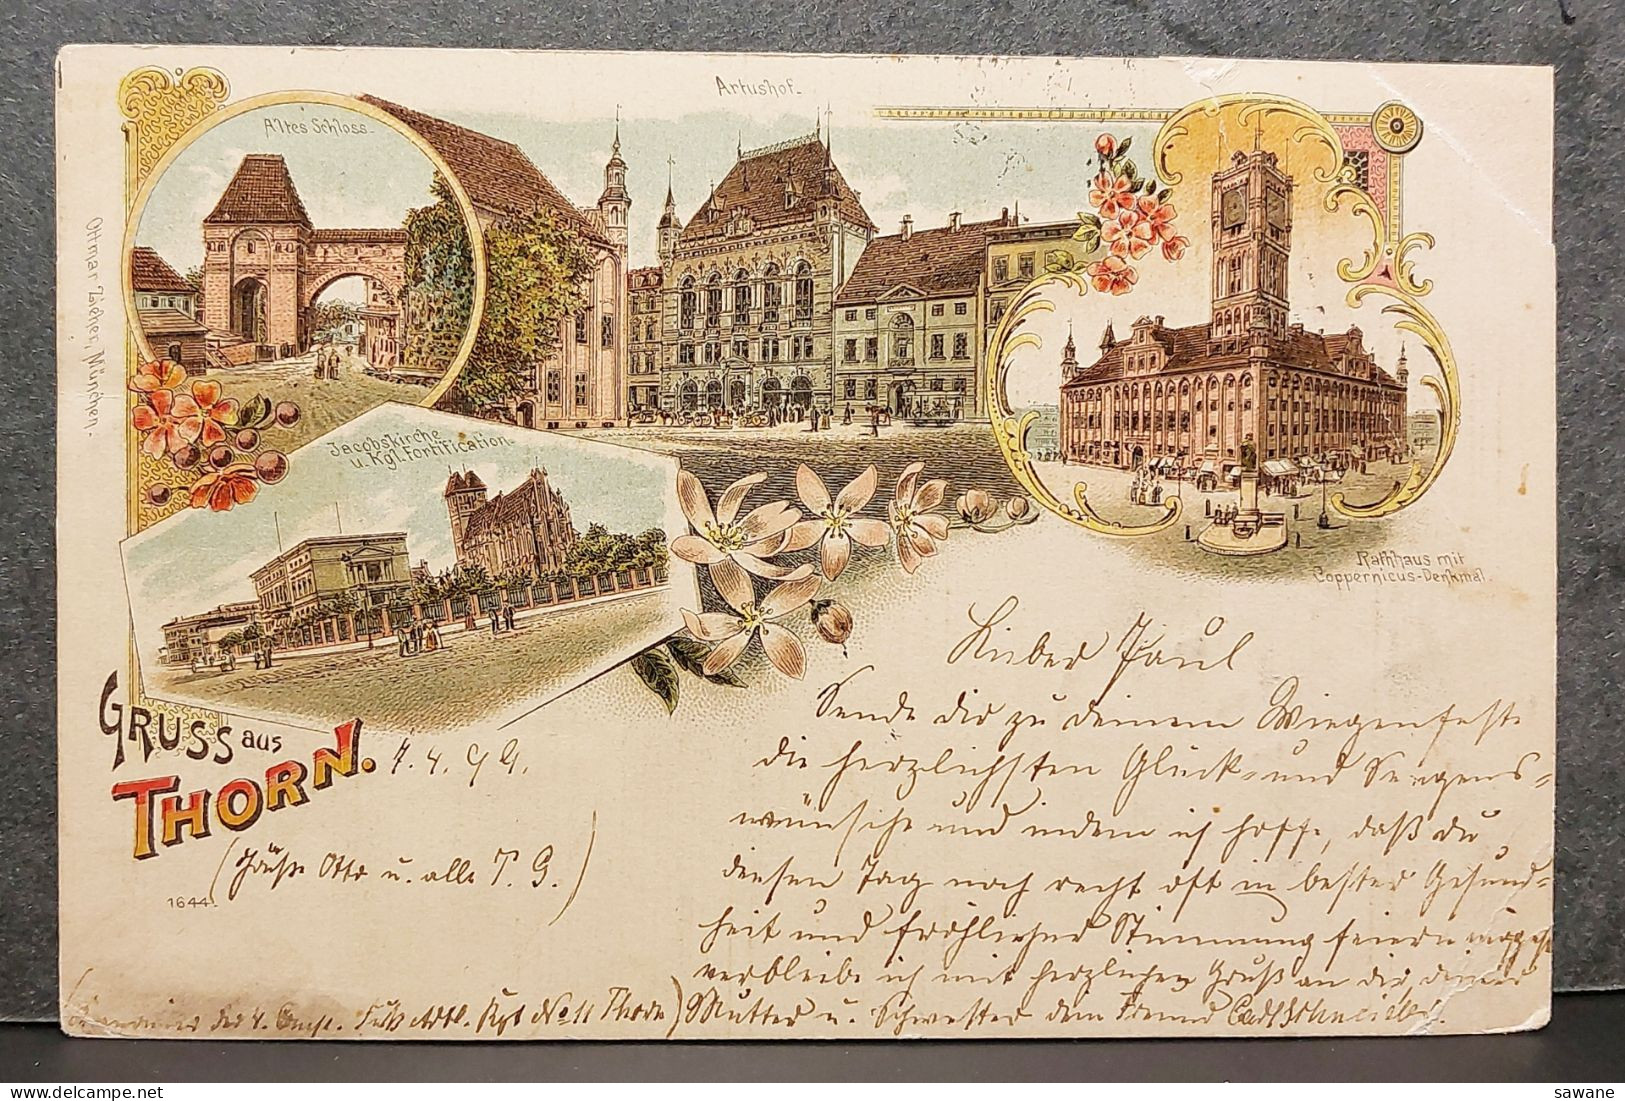 Artushof.
Altes Schloss.
Ottmar Zieher, München.
Jacobskirche
u. Kgl. Fortification.
Rathhaus mit
Coppernicus-Denkmal.
GRUSS aus
THORN.
7. 4. 99.
Lieber Paul
Sende dir zu deinem Wiegenfeste
die herzlichsten Glück- und Segens-
wünsche und indem ich hoffe, daß du
diesen Tag noch recht oft in bester Gesund-
heit und fröhlicher Stimmung feiern mögest
verbleibe ich mit herzlichen Gruß an dich, deiner
Mutter u. Schwester dein Freund Carl Schneider.
(Grüße Otto u. alle T. G.)
1644.
der 4. Comp. Fuß Artl. Rgt No 11 Thorn)
sawane